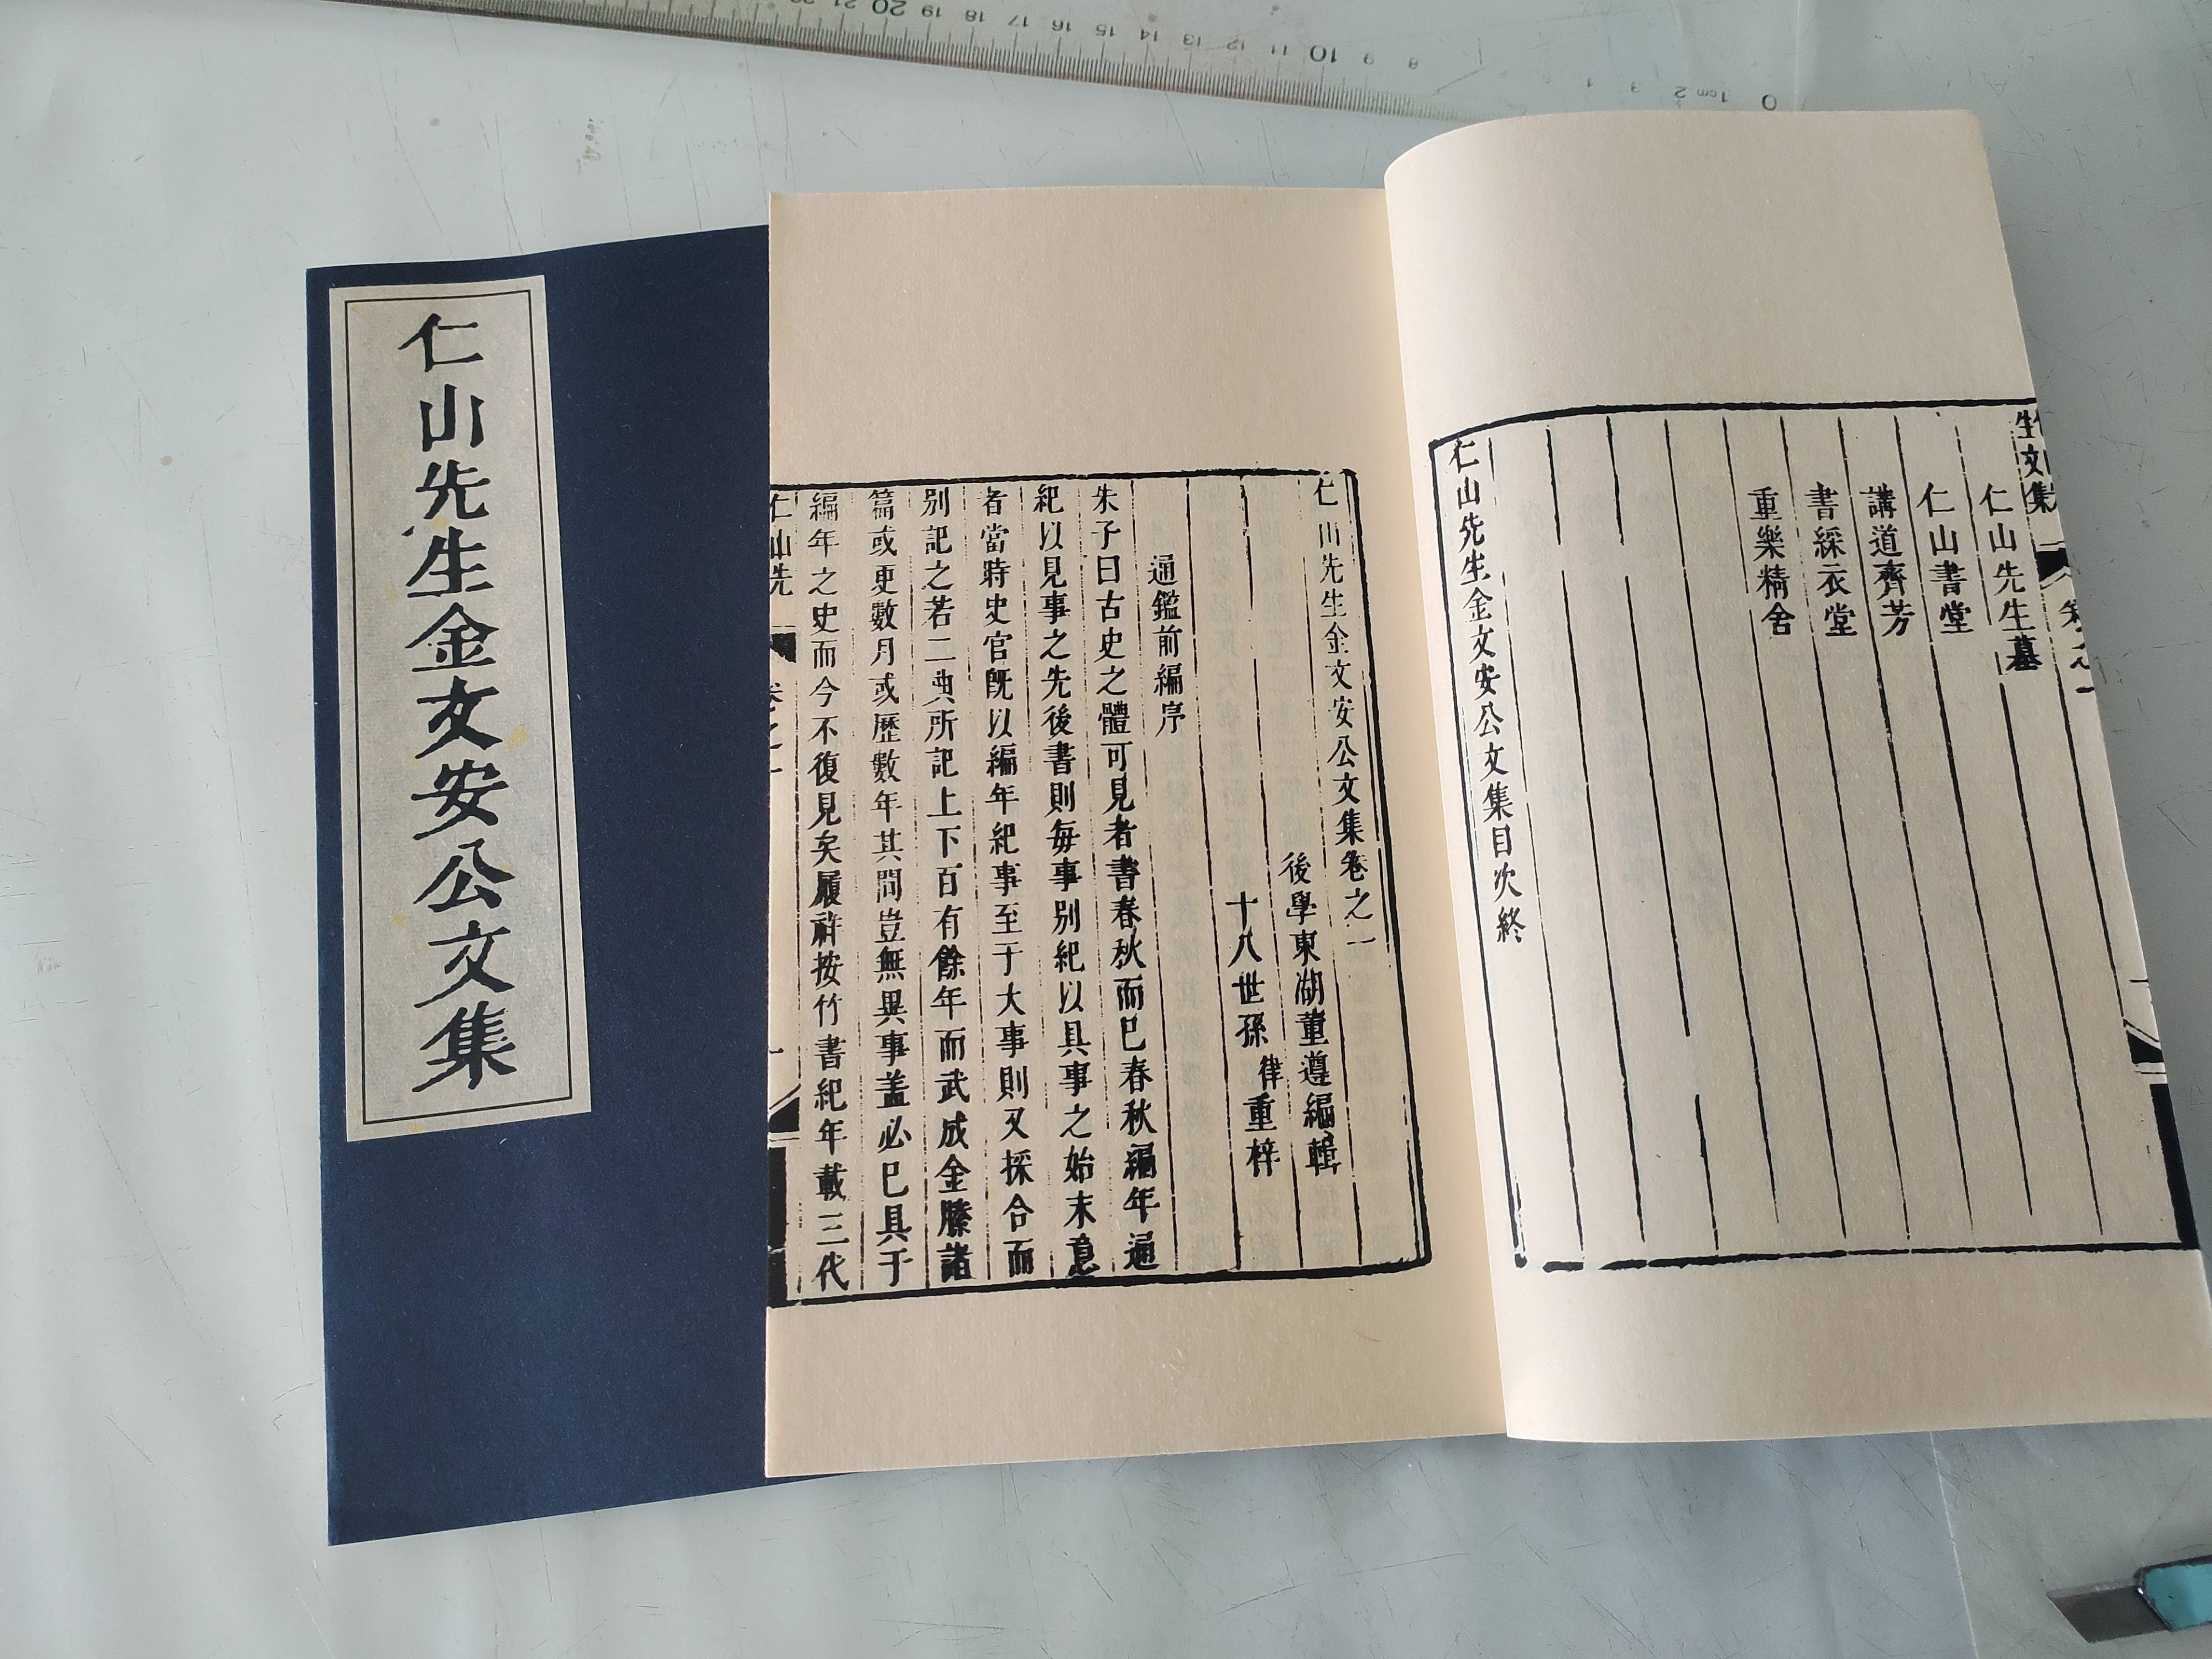 仁山先生金文安公文集
生文集 卷之一
仁山先生墓
仁山書堂
講道齊芳
書綵衣堂
重樂精舍
仁山先生金文安公文集目次終
仁山先生金文安公文集卷之一
後學東湖董遵編輯
十八世孫律重梓
通鑑前編序
朱子曰古史之體可見者書春秋而已春秋編年通
紀以見事之先後書則每事别紀以具事之始末意
者當時史官旣以編年紀事至于大事則又採合而
别記之若二典所記上下百有餘年而武成金縢諸
篇或更數月或歷數年其間豈無異事盖必已具于
編年之史而今不復見矣履祥按竹書紀年載三代
仁山先 卷之一 一
0 1cm 2 3 8 9 10 11 12 13 14 15 16 17 18 19 20